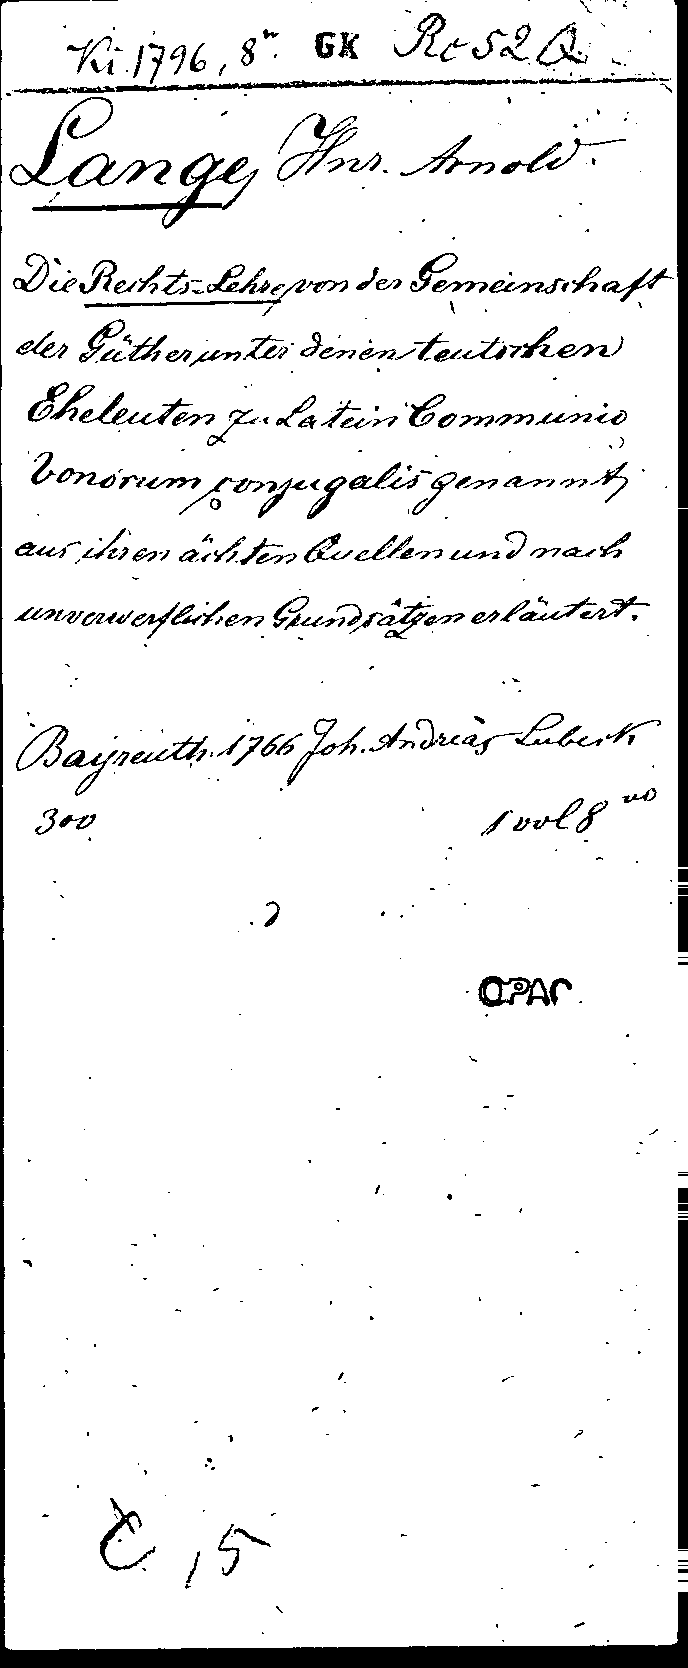 Ki 1796, 8° GK Rc 52 Q
Lange, Hnr. Arnold.
Die Rechts-Lehre von der Gemeinschaft
der Güther unter denen teutschen
Eheleuten zu Latein Communio
bonorum conjugalis genannt,
aus ihren ächten Quellen und nach
unverwerflichen Grundsätzen erläutert.
Bayreuth. 1766 Joh. Andreas Lubeck
300 1 vol 8 vo
OPAC
C, 15